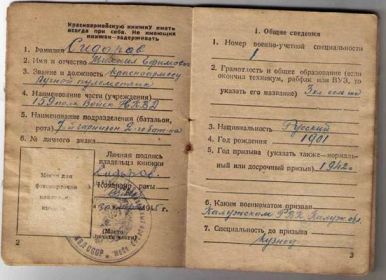 Красноармейскую книжку иметь
всегда при себе. Не имеющих
книжек—задерживать
1. Фамилия Сидоров
2. Имя и отчество Михаил Ефимович
3. Звание и должность Красноармеец
пулеметчик
4. Наименование части (учреждения)
159 полк Войск НКВД
5. Наименование подразделения (батальон,
рота)
6. № личного знака
Личная подпись
владельца книжки
Сидоров
Место для
2
I. Общие сведения
1. Номер военно-учетной специальности
1
2. Грамотность и общее образование (если
окончил техникум, рабфак или ВУЗ, то
указать его название)
3. Национальность Русский
4. Год рождения 1901
5. Год призыва (указать также—нормаль-
ный или досрочный призыв) 1942
6. Каким военкоматом призван
Калужским РВК
7. Специальность до призыва
кузнец
3